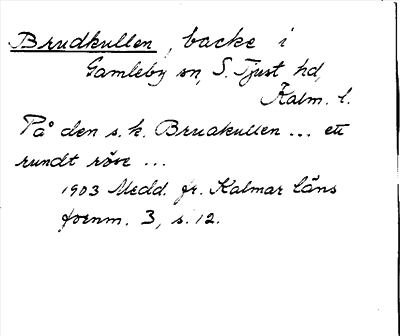 Brudkullen, backe i
Gamleby sn, S. Tjust hd,
Kalm. l.
På den s.k. Brudkullen ... ett
rundt röse ...
1903 Medd. fr. Kalmar läns
fornm. 3, s. 12.